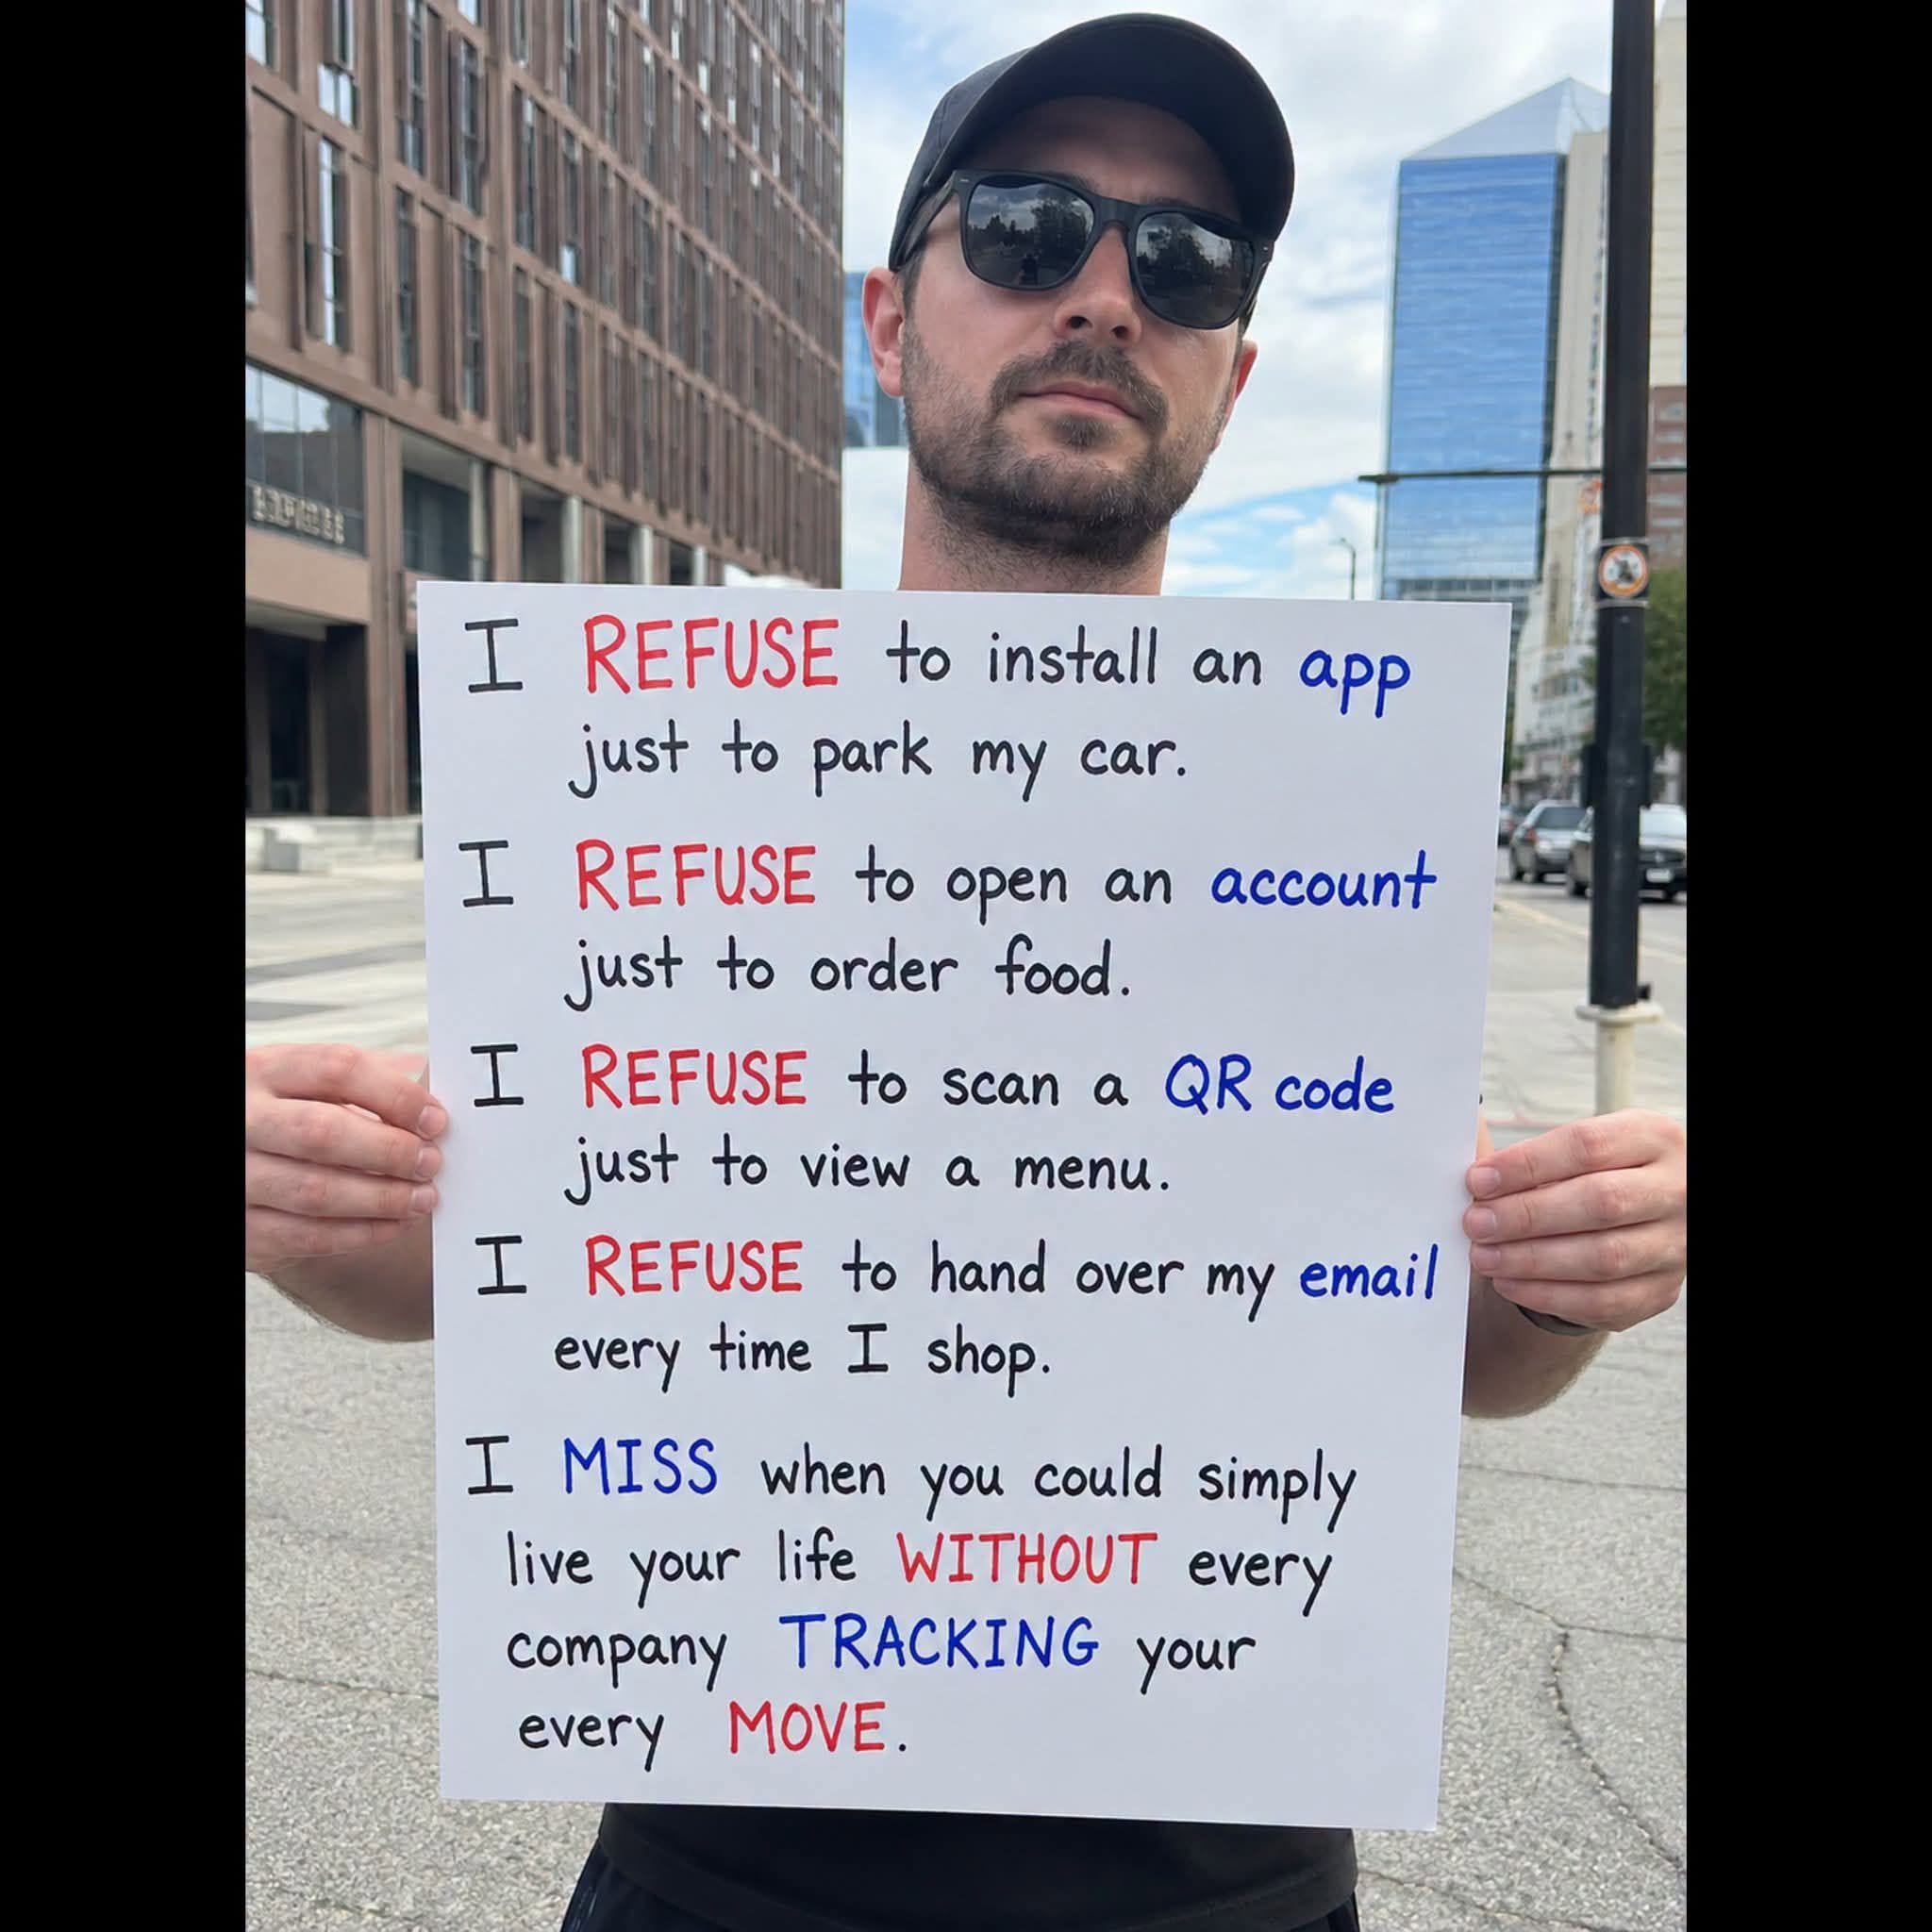 I REFUSE to install an app
just to park my car.
I REFUSE to open an account
just to order food.
I REFUSE to scan a QR code
just to view a menu.
I REFUSE to hand over my email
every time I shop.
I MISS when you could simply
live your life WITHOUT every
company TRACKING your
every MOVE.